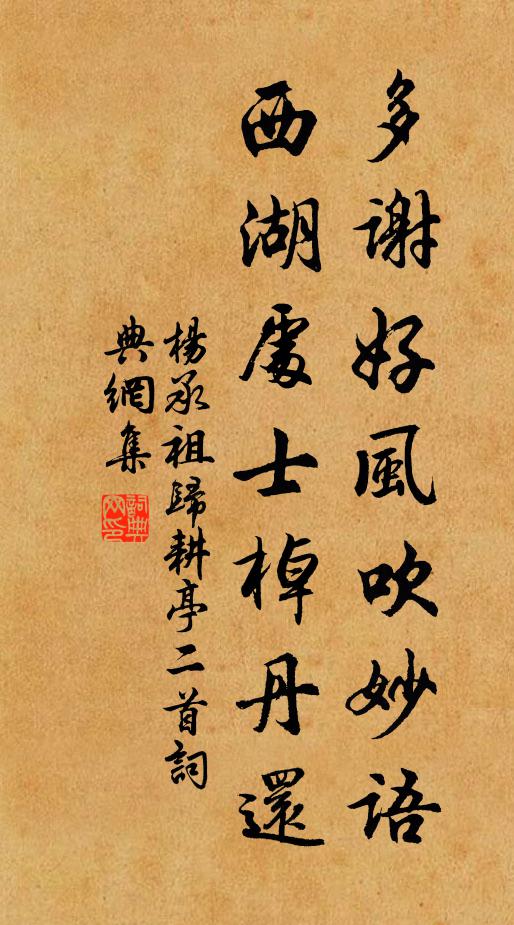 多谢好風吹妙語
西湖處士棹丹還
楊承祖歸耕亭二首詞
典網集
詞典網印